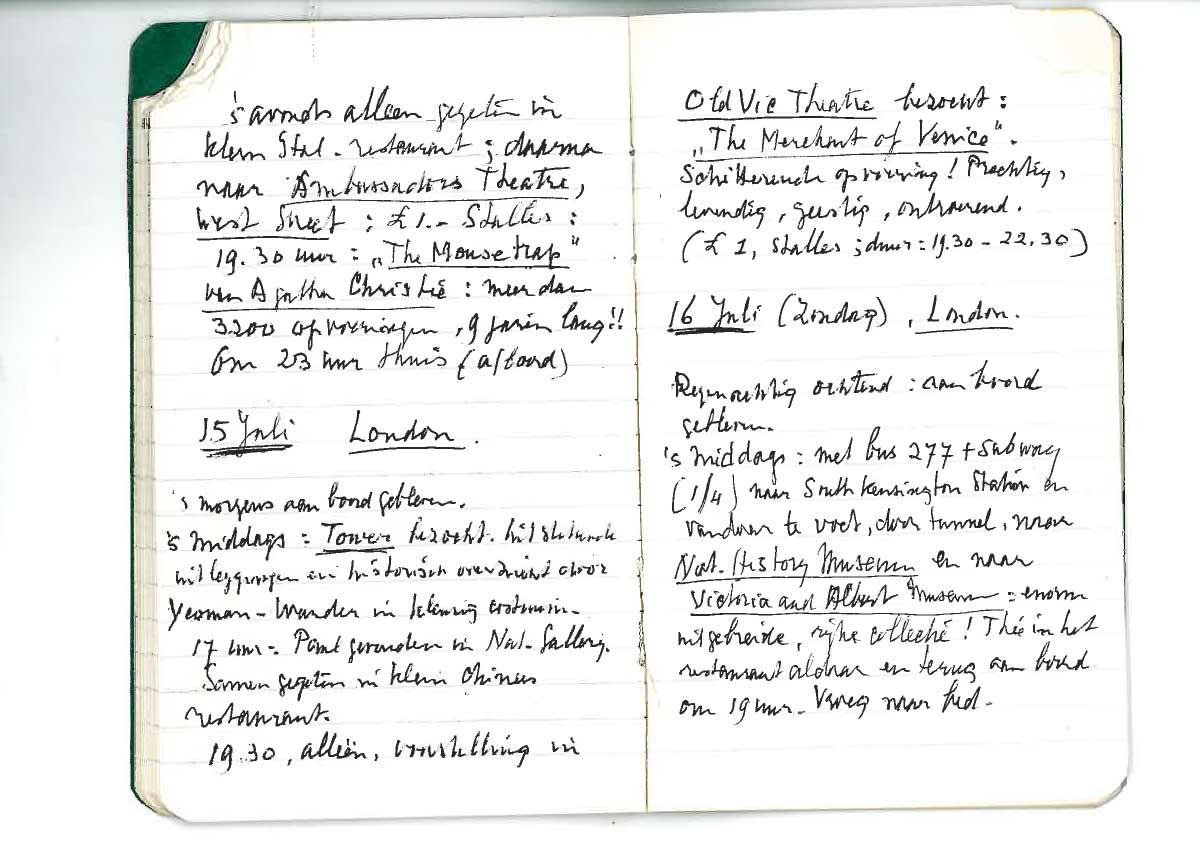 's avonds alleen gegeten in
klein Ital. restaurant ; daarna
naar Ambassadors Theatre,
West Street : £ 1.- Stalles :
19.30 uur : „The Mousetrap”
van Agatha Christie : meer dan
3200 opvoeringen, 9 jaren lang!!
Om 23 uur thuis (a/boord)
15 Juli London.
's morgens aan boord gebleven.
's middags : Tower bezocht. Uitstekende
uitleggingen en historisch overzicht door
Yeoman-Warder in kleurig costuum.
17 uur : Paul gevonden in Nat. Gallery.
Samen gegeten in klein Chinees
restaurant.
19.30, alleen, voorstelling in
Old Vic Theatre bezocht :
„The Merchant of Venice”.
Schitterende opvoering! Prachtig,
levendig, geestig, ontroerend.
(£ 1, Stalles ; duur : 19.30 - 22.30)
16 Juli (Zondag), London.
Regenachtig ochtend : aan boord
gebleven.
's middags : met bus 277 + Subway
(1/4) naar South Kensington Station en
vandaar te voet, door tunnel, naar
Nat. History Museum en naar
Victoria and Albert Museum : enorm
uitgebreide, rijke collectie! Thee in het
restaurant aldaar en terug aan boord
om 19 uur. Vroeg naar bed.